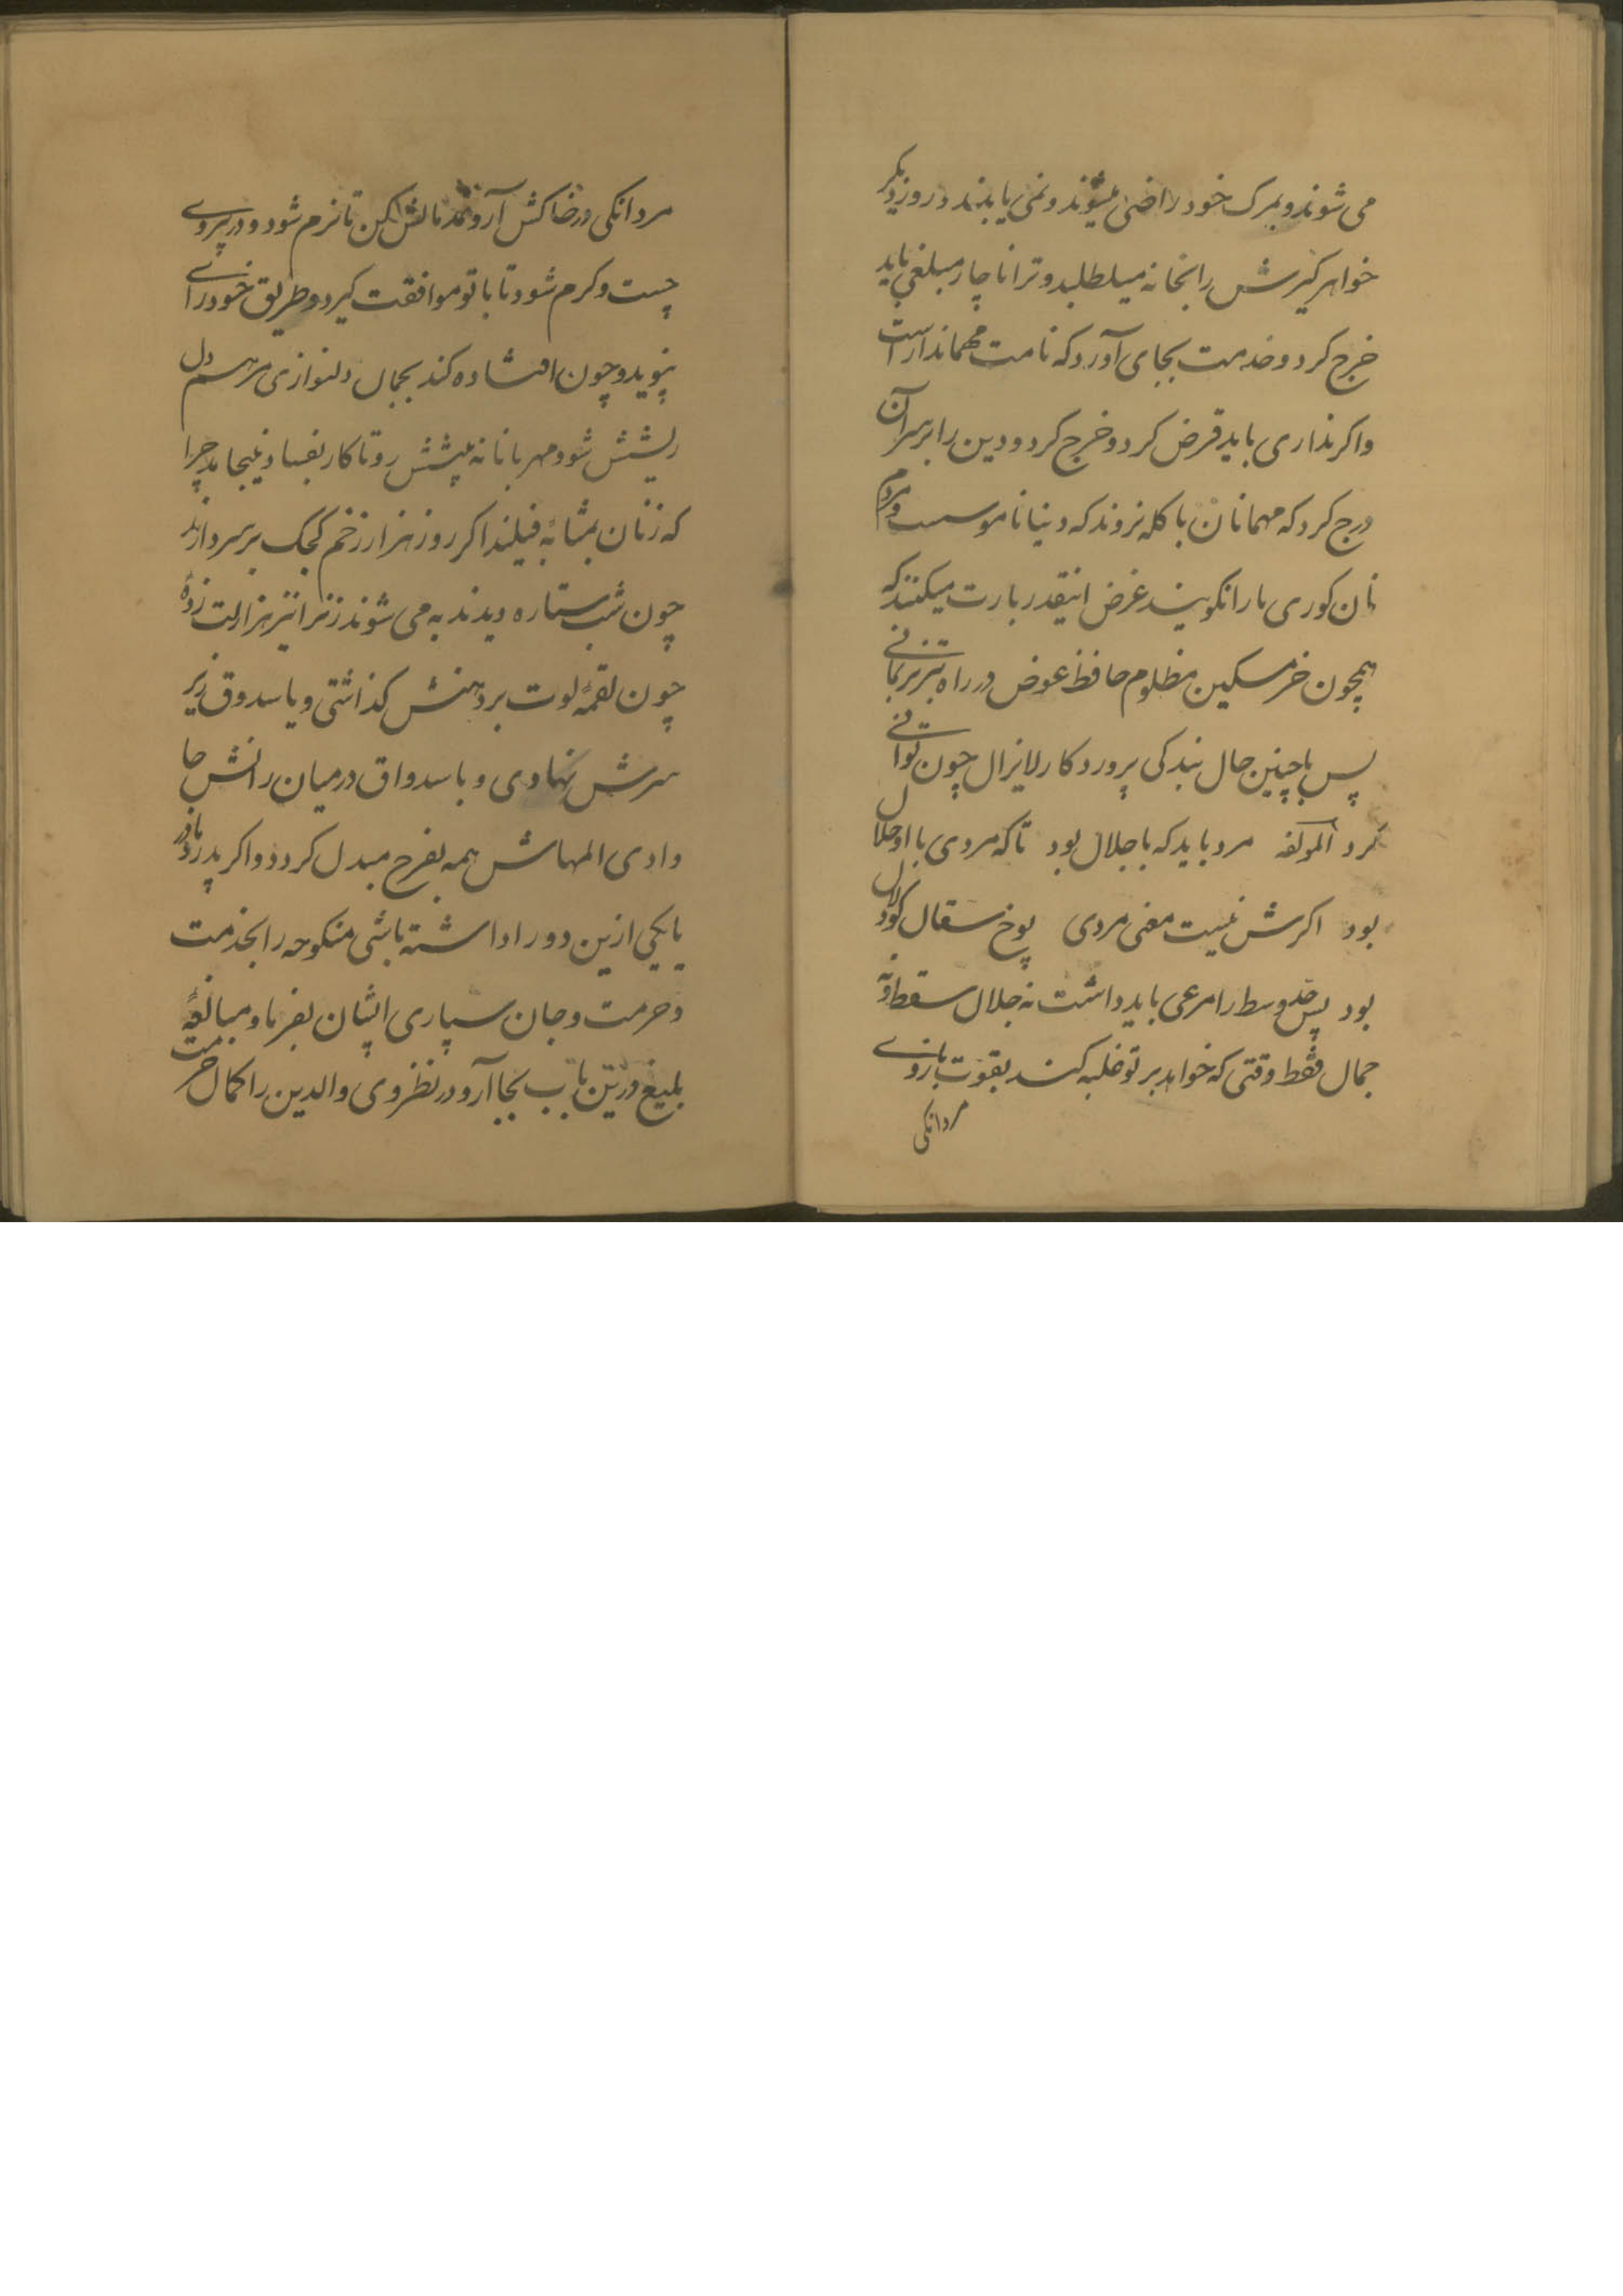 می شوند و بمرک خود راضی میشوند و نمی یابند در روز دیکر
خواهر کیرش را بخانه میطلبد و ترا ناچار مبلغی باید
خرج کرد و خدمت بجای آورد که نامت مهماندار است
واکر نداری باید قرض کرد و خرج کرد و دین را بر سر آن
درج کرد که مهمانان با کله نروند که دنیا ناموسست و مردم
نان کوری ما را نکویند غرض اینقدر بارت میکنند که
همچون خر مسکین مظلوم حافظ عوض در راه تیزتر بمانی
پس با چنین حال بندکی پروردکار لایزال چون توانی
کرد لمولفه مرد باید که با جلال بود تا که مردی با او حلال
بود اکرش نیست معنی مردی پوخ سقال کلال
بود پس حد وسط را مرعی باید داشت نه جلال سقط و نه
جمال فقط وقتی که خواهد بر تو غلبه کند بقوت بازوی
مردانکی
مردانکی در خاکش آر و مالش کن تا نرم شود و در پیروی
چست و کرم شود تا با تو موافقت کیرد و طریق خود رائی
نپوید و چون افتاده کند بجمال دلنوازی مرهم دل
ریشش شو و مهربانانه پیشش رو تا کار بفساد نینجامد چرا
که زنان بمثابه فیلند اکر روز هزار زخم کجک بر سر دارند
چون شب ستاره دیدند به می شوند زنرا نیز هزار لت زدهٔ
چون لقمهٔ لوت بر دهنش کذاشتی و یا سدوق زیر
سرش نهادی و با سدواق در میان رانش جا
دادی المهاش همه بفرح مبدل کردد و اکر پدر و مادر
یا یکی ازین دو را داشته باشی منکوحه را بخدمت
و حرمت و جان سپاری ایشان بفرما و مبالغهٔ
بلیغ درین باب بجا آر و در نظر وی والدین را کمال حرمت